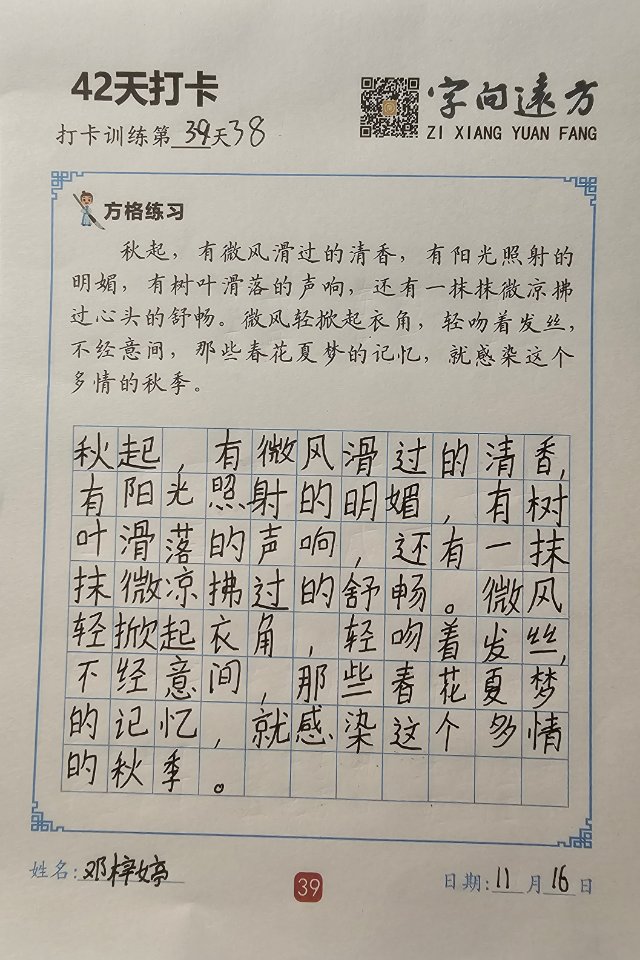 42天打卡
字向远方
ZI XIANG YUAN FANG
打卡训练第39天38
方格练习
秋起，有微风滑过的清香，有阳光照射的
明媚，有树叶滑落的声响，还有一抹抹微凉拂
过心头的舒畅。微风轻掀起衣角，轻吻着发丝，
不经意间，那些春花夏梦的记忆，就感染这个
多情的秋季。
秋起，有微风滑过的清香，
有阳光照射的明媚，有树
叶滑落的声响，还有一抹
抹微凉拂过的舒畅。微风
轻掀起衣角，轻吻着发丝，
不经意间，那些春花夏梦
的记忆，就感染这个多情
的秋季。
姓名:邓梓婷
39
日期:11月16日